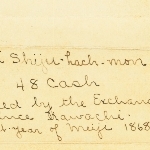 Shiju-hach-mon
48 Cash
ed by the Exchan
ince Kawachi.
year of Meiji 1868